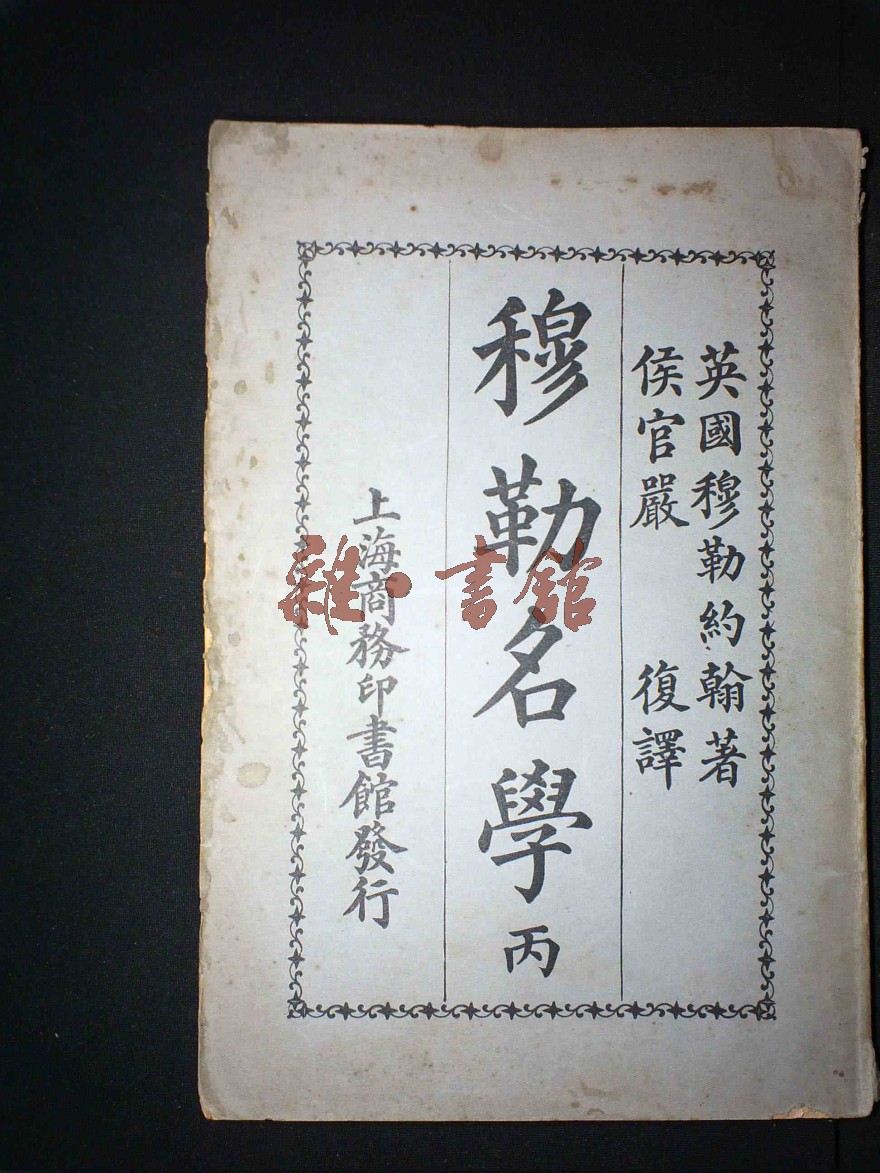 英國穆勒約翰著
侯官嚴 復譯
穆勒名學 丙
上海商務印書館發行
雜·書館